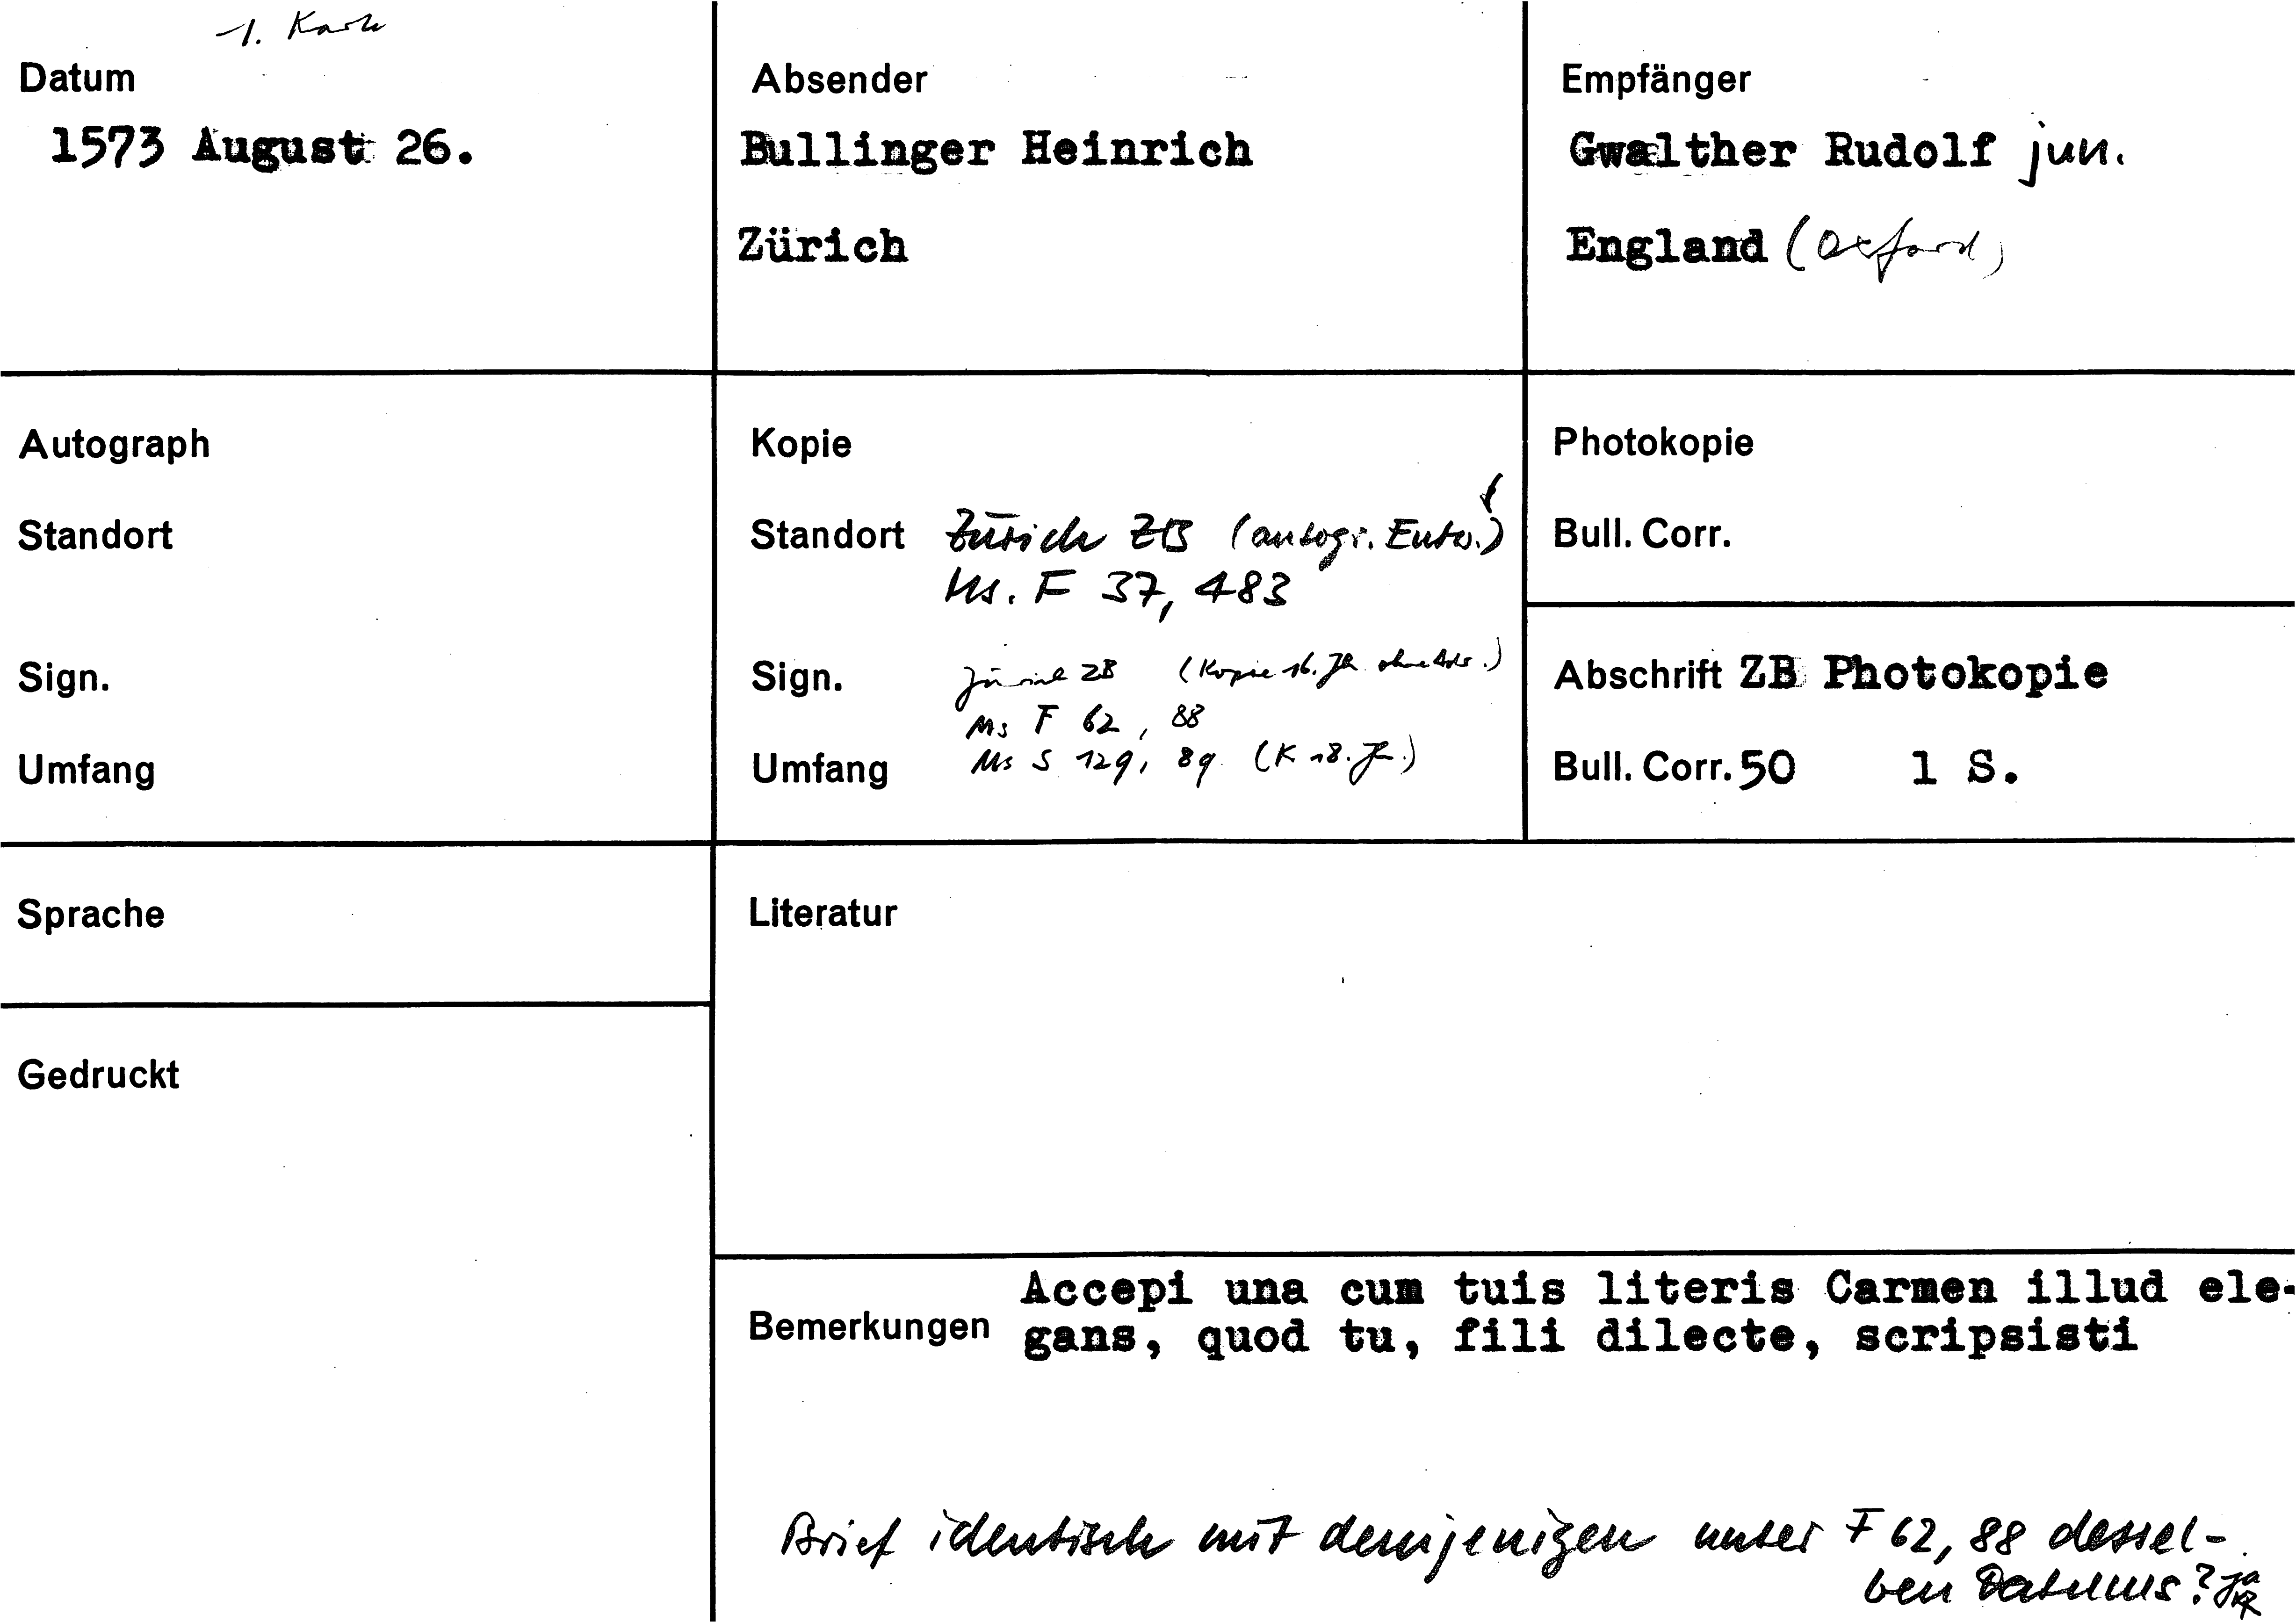 1. Karte
Datum
1573 August 26.
Absender
Bullinger Heinrich
Zürich
Empfänger
Gwalther Rudolf jun.
England (Oxford)
Autograph
Standort
Sign.
Umfang
Kopie
Standort Zürich ZB (autogr. Entw.)
Ms. F 37, 483
Sign. Zürich ZB (Kopie 16. Jh. ohne Adr.)
Ms F 62, 88
Umfang Ms S 129, 89 (K 18. Jh.)
Photokopie
Bull. Corr.
Abschrift ZB Photokopie
Bull. Corr. 50 1 S.
Sprache
Literatur
Gedruckt
Accepi una cum tuis literis Carmen illud ele-
Bemerkungen gans, quod tu, fili dilecte, scripsisti
Brief identisch mit demjenigen unter F 62, 88 dessel-
ben Datums? ja